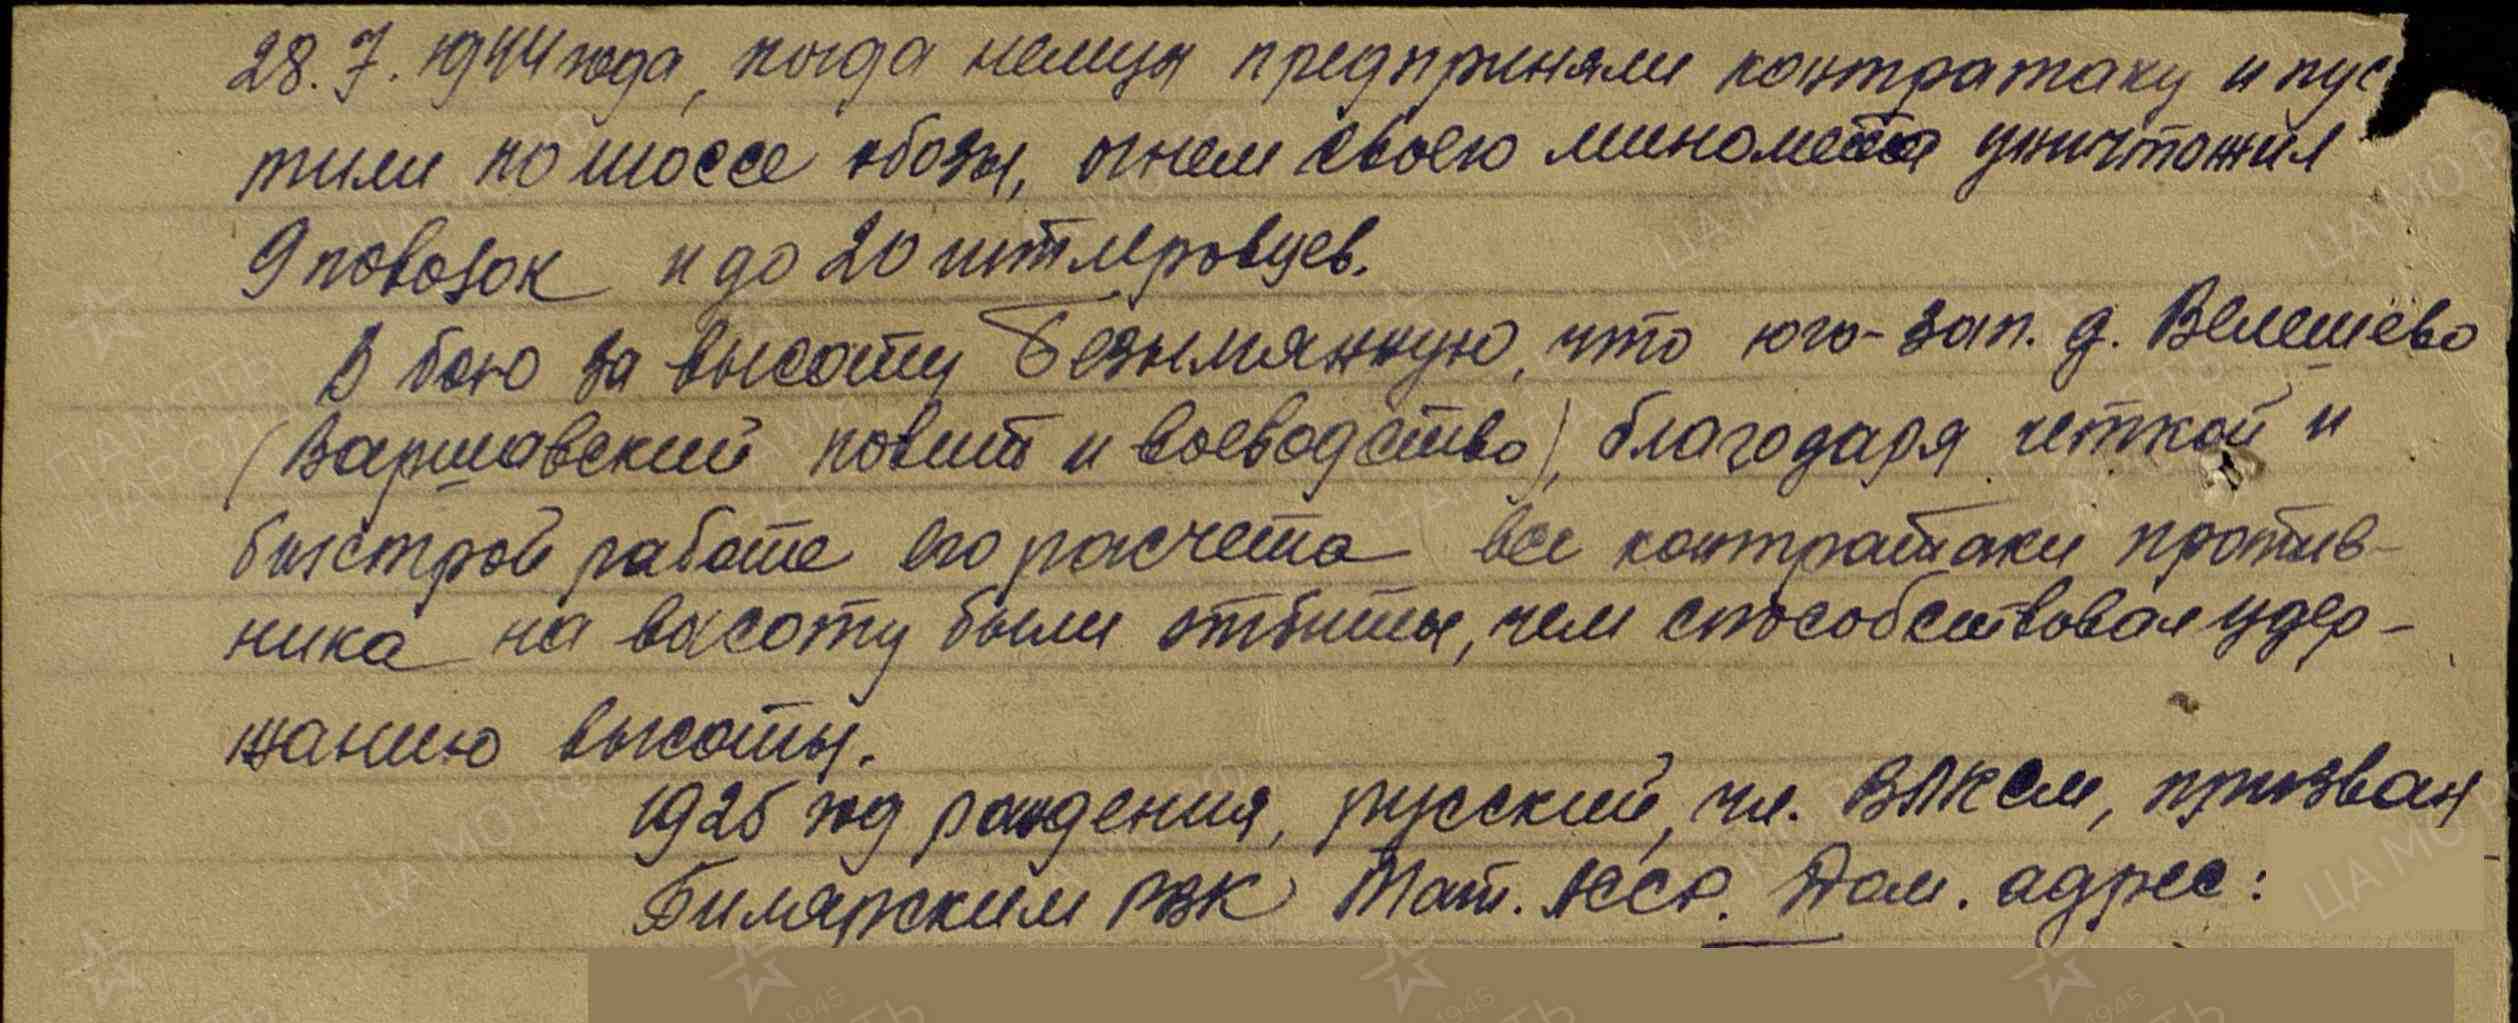 28.7.1944 года, когда немцы предприняли контратаку и пус
тили по шоссе обозы, огнем своего миномета уничтожил
9 повозок и до 20 гитлеровцев.
В бою за высоту Безымянную, что юго-зап. д. Велешево
(Варшавский повит и воеводство), благодаря четкой и
быстрой работе его расчета все контратаки против-
ника на высоту были отбиты, чем способствовал удер-
жанию высоты.
1925 год рождения, русский, чл. ВЛКСМ, призван
Билярским РВК Тат. АССР. Дом. адрес: